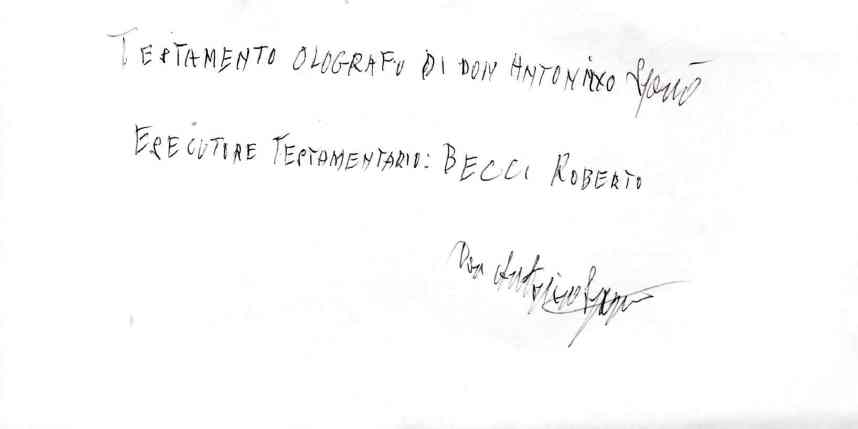 TESTAMENTO OLOGRAFO DI DON ANTONINO
ESECUTORE TESTAMENTARIO: BECCI ROBERTO
Don Antonino